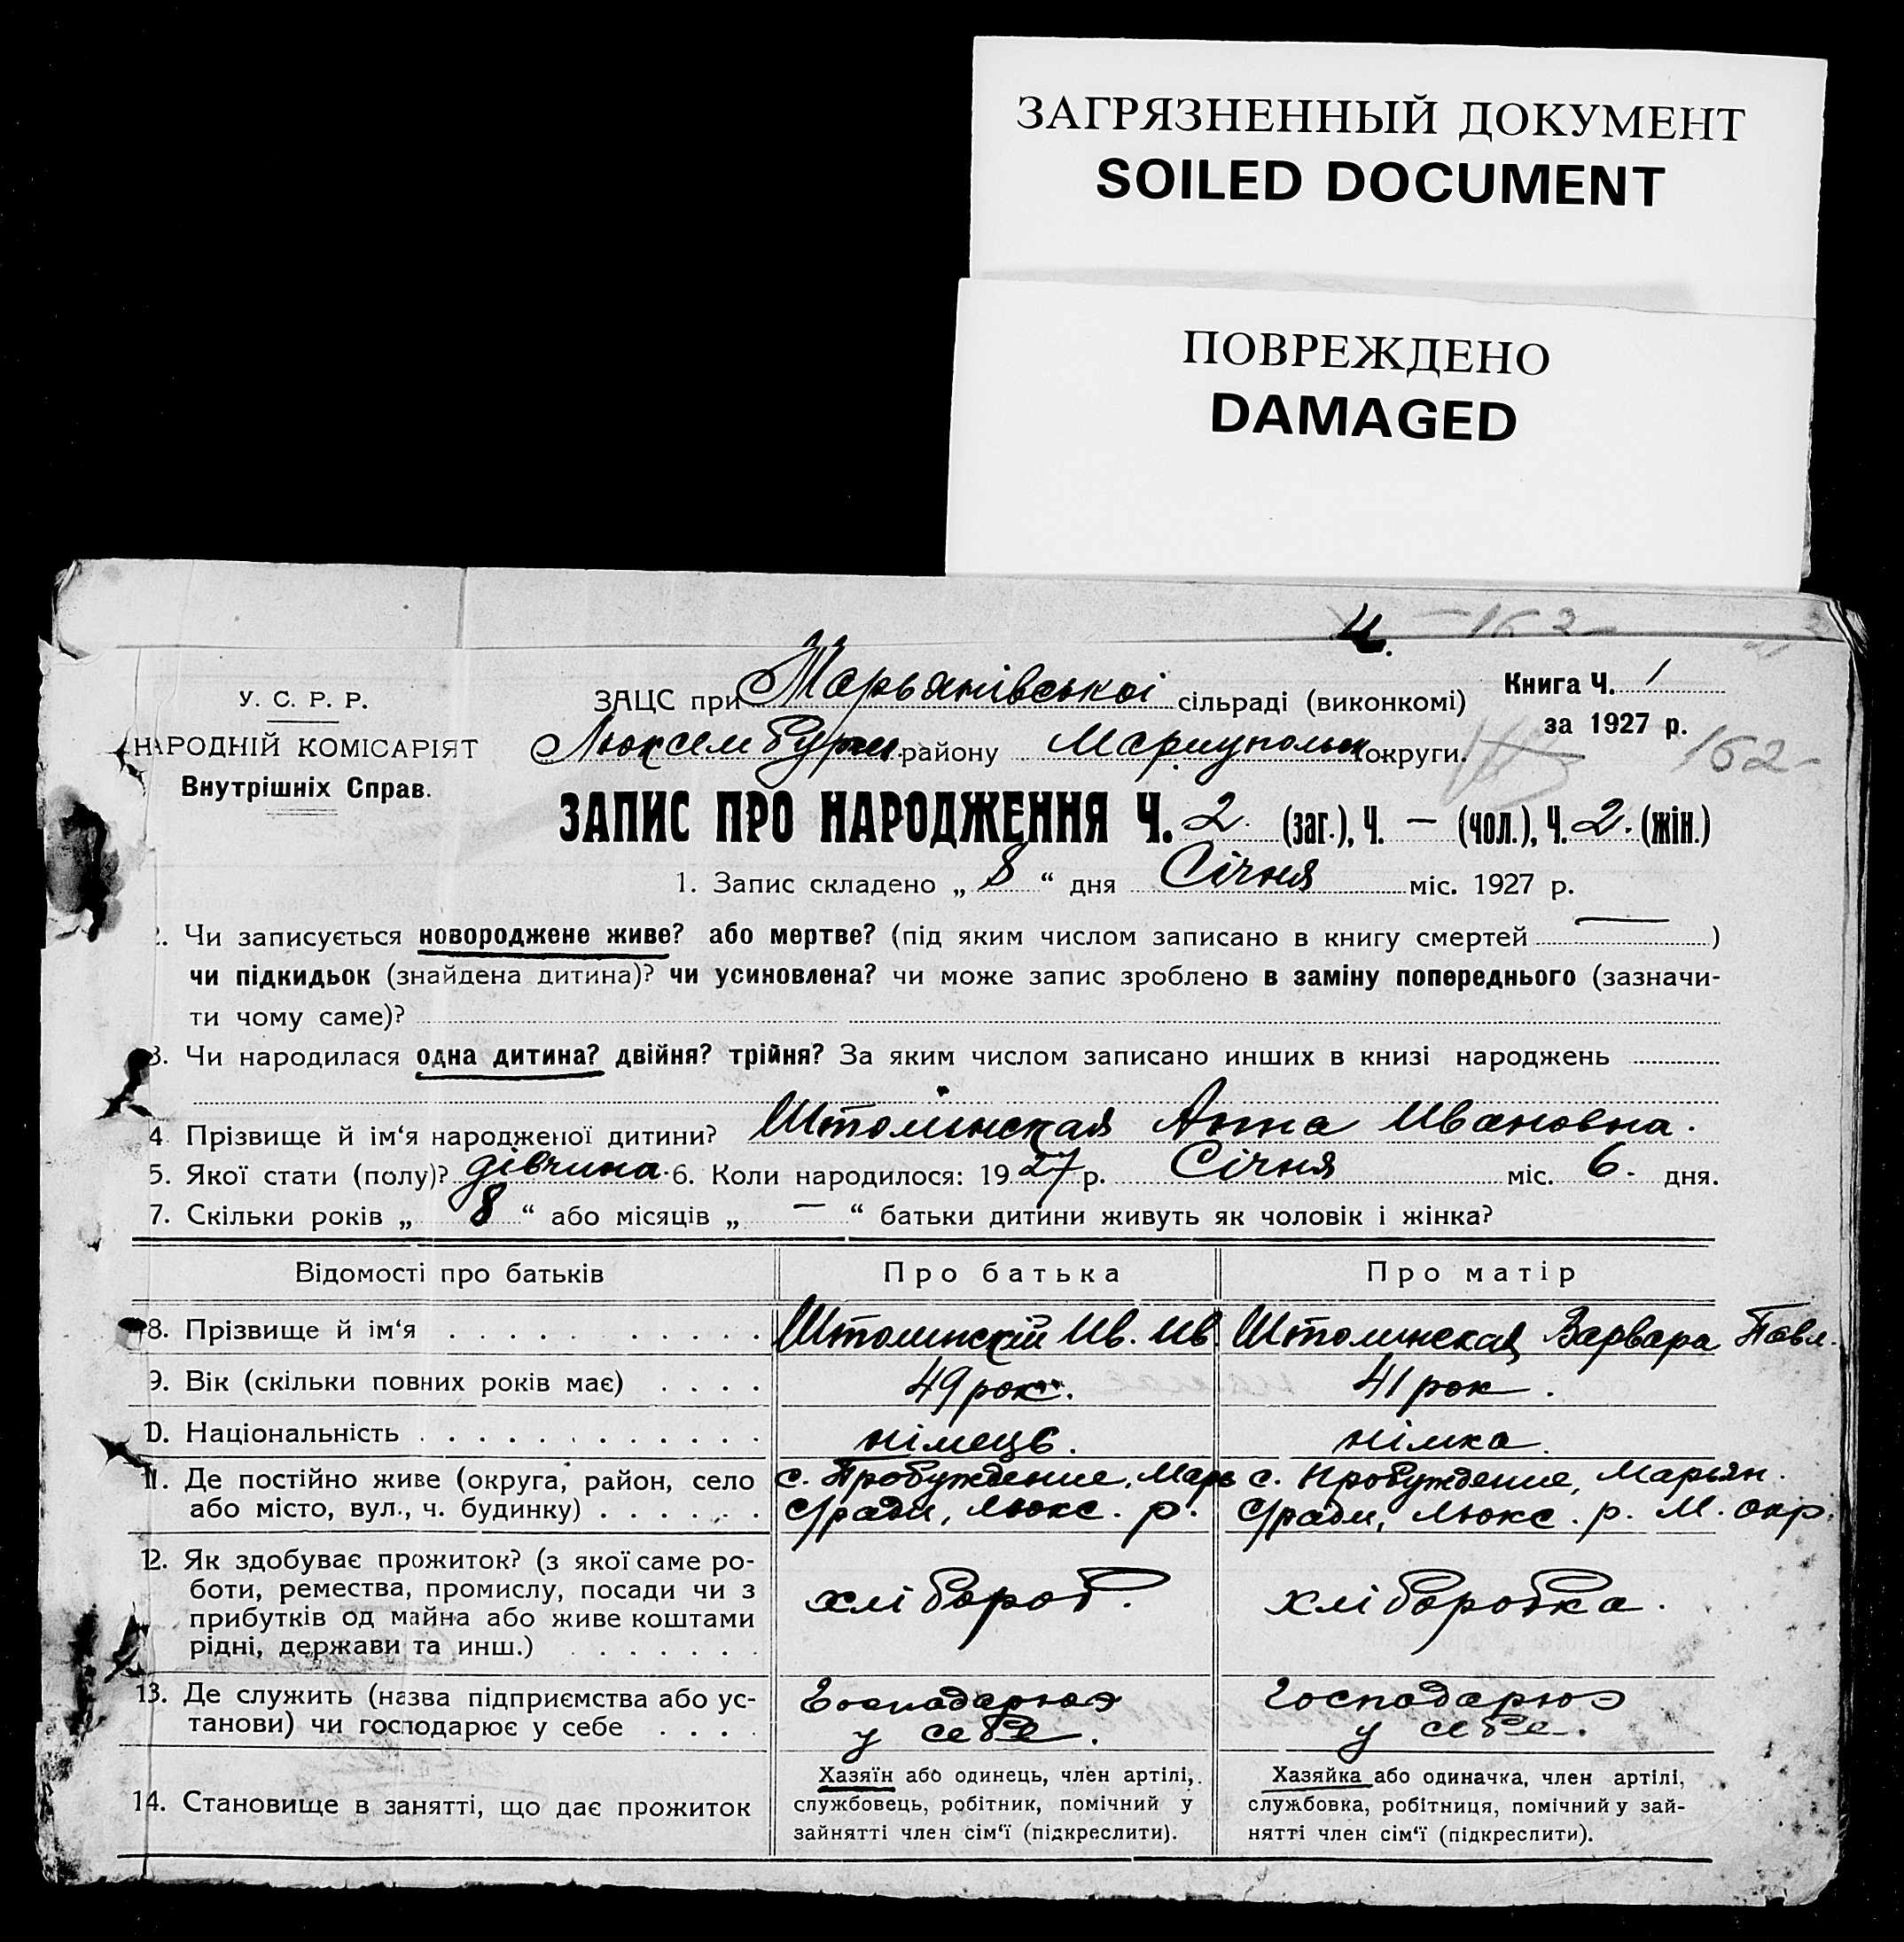 ЗАГРЯЗНЕННЫЙ ДОКУМЕНТ
SOILED DOCUMENT
ПОВРЕЖДЕНО
DAMAGED
163-
У. С. Р. Р.
НАРОДНІЙ КОМІСАРІЯТ
Внутрішніх Справ.
ЗАЦС при Марьянівської сільраді (виконкомі)
Люксембург. району Мариупольск округи.
Книга Ч. 1
за 1927 р.
162-
ЗАПИС ПРО НАРОДЖЕННЯ Ч. 2. (заг.), Ч. — (чол.), Ч. 2. (жін.)
1. Запис складено „ 8 “ дня Січня міс. 1927 р.
2. Чи записується новороджене живе? або мертве? (під яким числом записано в книгу смертей — )
чи підкидьок (знайдена дитина)? чи усиновлена? чи може запис зроблено в заміну попереднього (зазначи-
ти чому саме)?
3. Чи народилася одна дитина? двійня? трійня? За яким числом записано инших в книзі народжень
4. Прізвище й ім‘я народженої дитини? Штолинская Анна Ивановна.
5. Якої стати (полу)? дівчина. 6. Коли народилося: 1927 р. Січня міс. 6. дня.
7. Скільки років „ 8 “ або місяців „ — “ батьки дитини живуть як чоловік і жінка?
Відомості про батьків Про батька Про матір
8. Прізвище й ім‘я Штолинскій Ив. Ив. Штолинская Варвара Павл.
9. Вік (скільки повних років має) 49 рок. 41 рок.
10. Національність німець. німка.
11. Де постійно живе (округа, район, село або місто, вул., ч. будинку)
с. Пробуждение, Марь с/ради, Люкс. р.
с. Пробуждение, Марьян. с/ради, Люкс. р. М. окр.
12. Як здобуває прожиток? (з якої саме ро-
боти, ремества, промислу, посади чи з
прибутків од майна або живе коштами
рідні, держави та инш.)
хлібороб. хлiборобка.
13. Де служить (назва підприємства або ус-
танови) чи господарює у себе
Господарює у себе. Господарює у себе.
14. Становище в занятті, що дає прожиток
Хазяїн або одинець, член артілі,
службовець, робітник, помічний у
зайнятті член сім‘ї (підкреслити).
Хазяйка або одиначка, член артілі,
службовка, робітниця, помічний у зай-
нятті член сім‘ї (підкреслити).